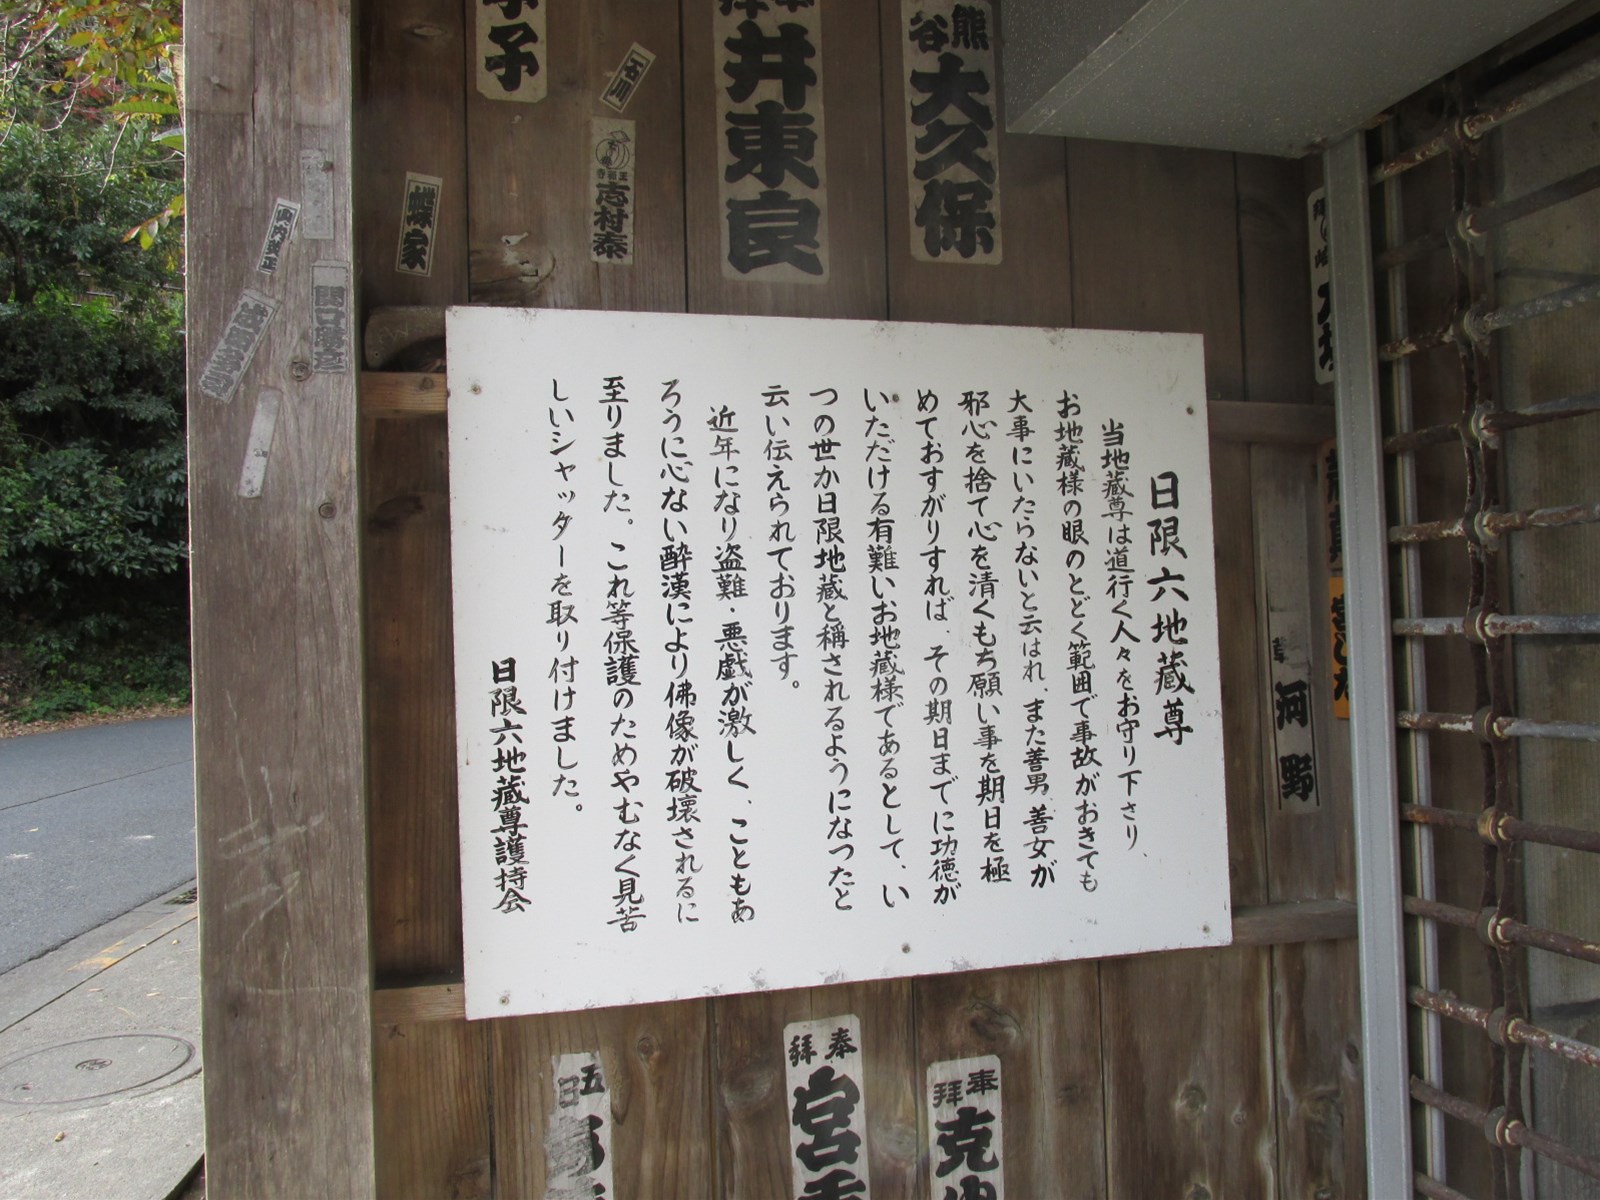 日限六地蔵尊
当地蔵尊は道行く人々をお守り下さり、
お地蔵様の眼のとどく範囲で事故がおきても
大事にいたらないと云はれ、また善男、善女が
邪心を捨て心を清くもち願い事を期日を極
めておすがりすれば、その期日までに功徳が
いただける有難いお地蔵様であるとして、い
つの世か日限地蔵と稱されるようになつたと
云い伝えられております。
近年になり盗難・悪戯が激しく、こともあ
ろうに心ない酔漢により佛像が破壊されるに
至りました。これ等保護のためやむなく見苦
しいシャッターを取り付けました。
日限六地蔵尊護持会
熊谷
大久保
井東良
子
石川
志村泰
家
関口
河野
奉拝
宮
奉拝
克